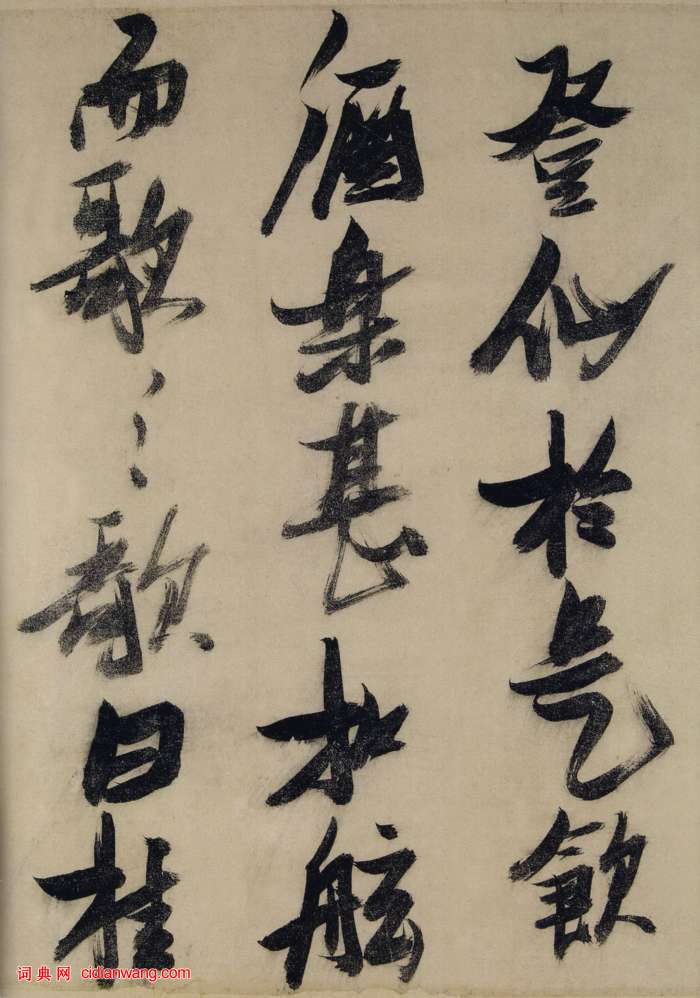 登仙於是飲
酒樂甚扣舷
而歌之歌曰桂
词典网 cidianwang.com